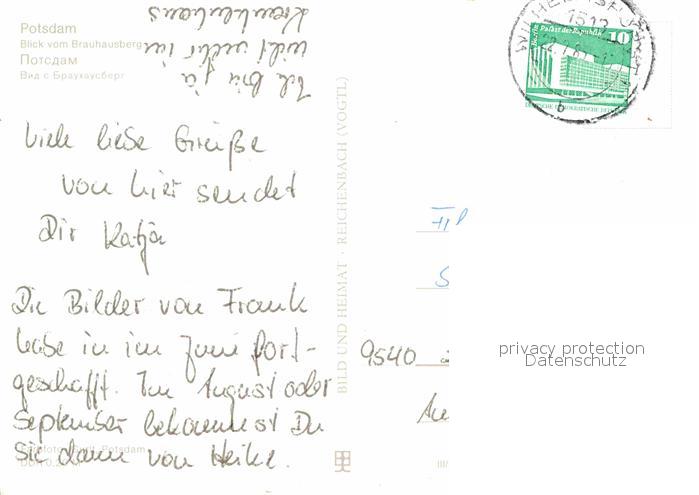 Potsdam
Blick vom Brauhausberg
Потсдам
Вид с Браухаусберг
Ich bin ja
nicht mehr im
Krankenhaus
Viele liebe Grüße
von hier sendet
Dir Katja
Die Bilder von Frank
habe in im Juni fort-
geschafft. Im August oder
September bekommst Du
Sie dann von Heike.
BILD UND HEIMAT · REICHENBACH (VOGTL)
Palast der Republik 10
DEUTSCHE DEMOKRATISCHE
1512
b
9540
privacy protection
Datenschutz